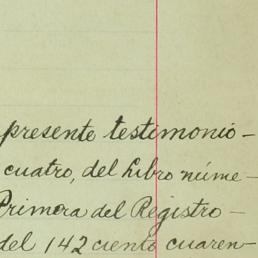 presente testimonio -
cuatro, del Libro núme-
Primera del Registro -
del 142 ciento cuaren-